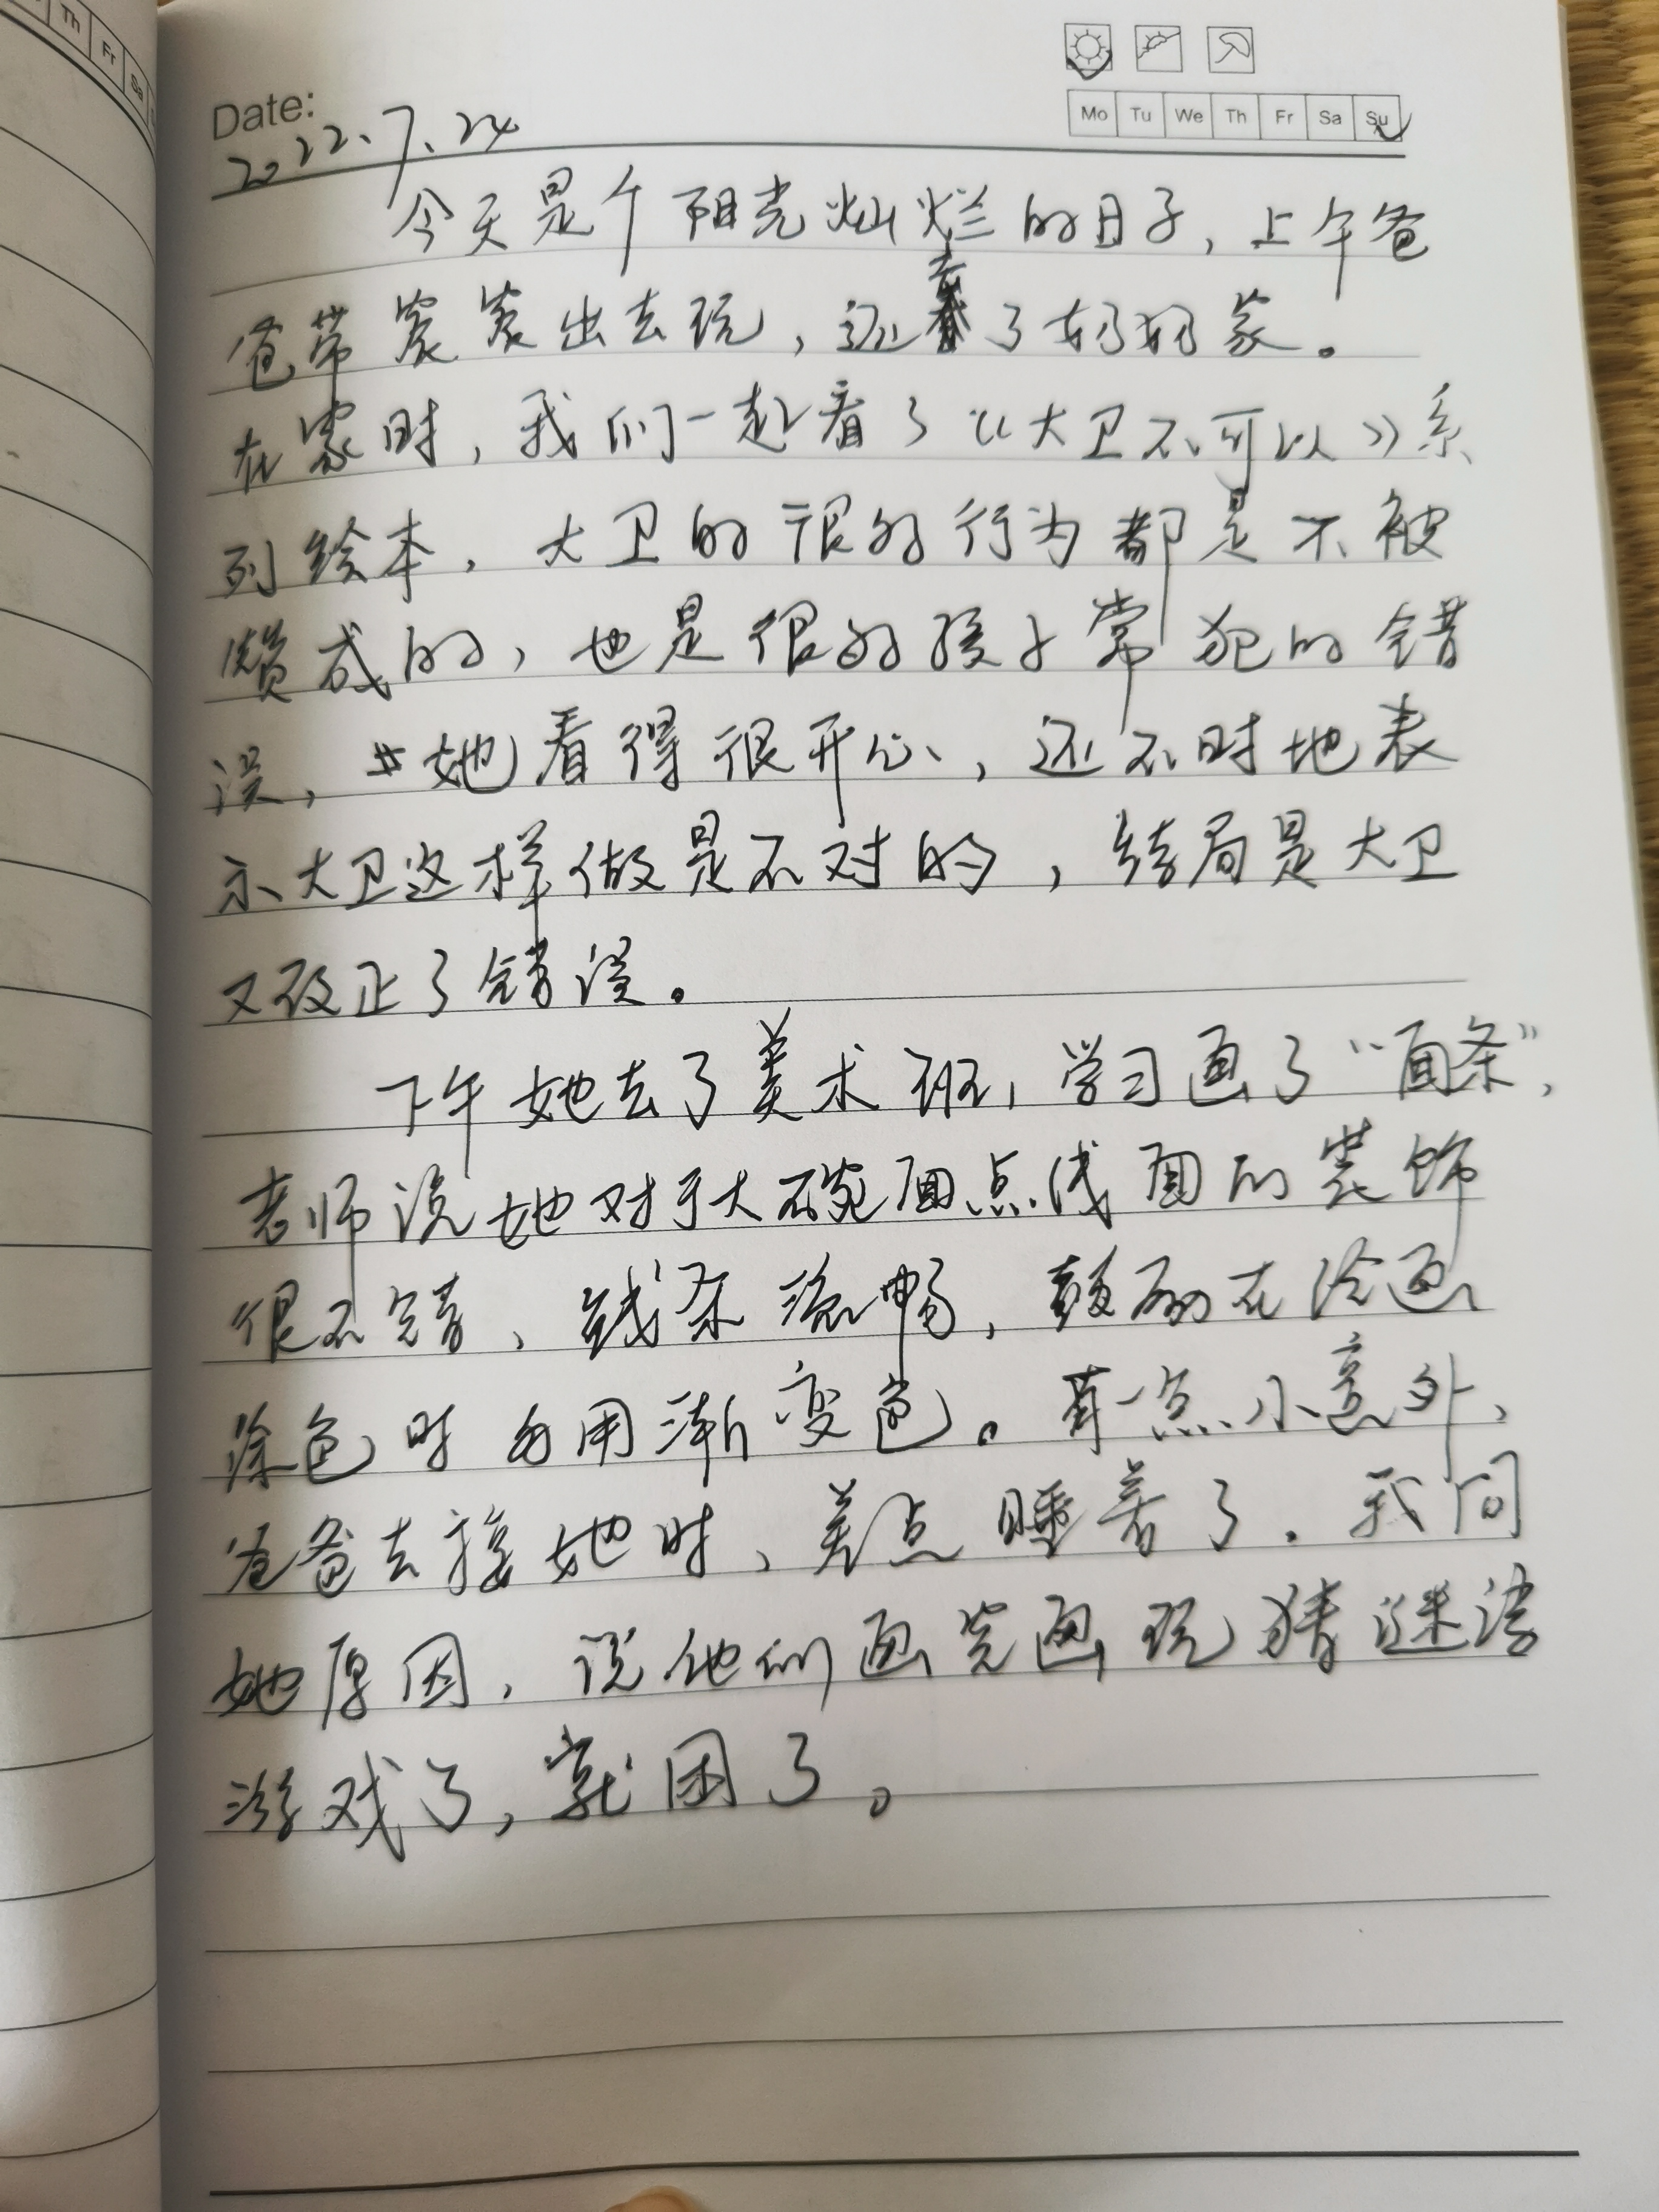 Th Fr Sa
Date:
2022.7.24
Mo Tu We Th Fr Sa Su
今天是个阳光灿烂的日子,上午爸
爸带 出去玩,还去了奶奶家。
在家时,我们一起看了《大卫不可以》系
列绘本,大卫的很多行为都是不被
赞成的,也是很多孩子常犯的错
误,她看得很开心,还不时地表
示大卫这样做是不对的,结局是大卫
又改正了错误。
下午她去了美术班,学习画了“面条”,
老师说她对于大碗面点线面的装饰
很不错,线条流畅,鼓励在绘画
涂色时多用渐变色。有一点小意外,
爸爸去接她时,差点睡着了。我问
她原因,说他们画完画玩猜谜语
游戏了,就困了。